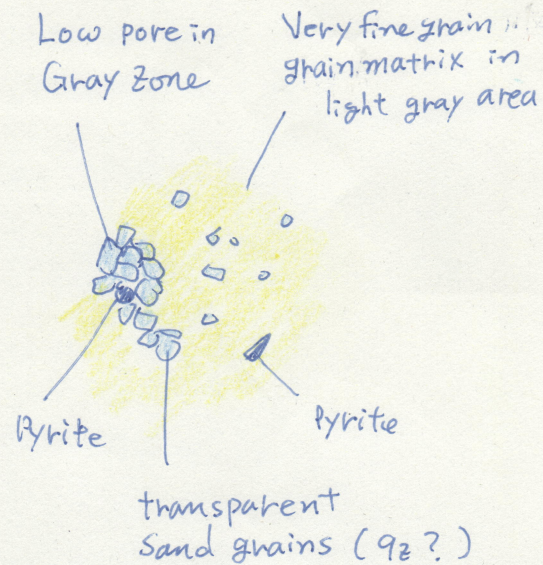 Low pore in
Gray Zone
Very fine grain
grain matrix in
light gray area
Pyrite
Pyrite
transparent
Sand grains (qz?)